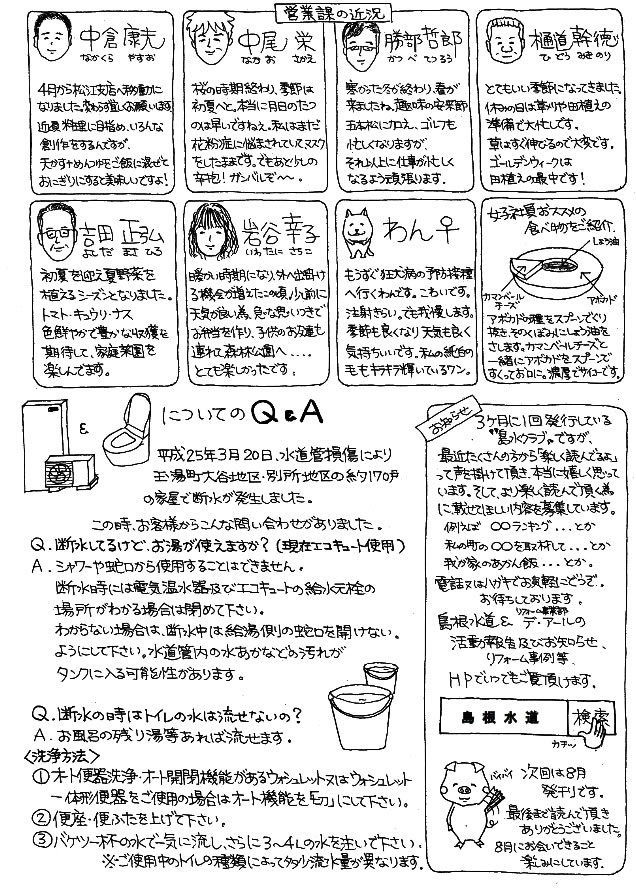 営業課の近況
中倉 康夫
なかくら やすお
4月から松江支店へ移動に
なりました。変わらず宜しくお願いします。
近頃料理に目覚め、いろんな
創作をするんですが、
天かすやめんつゆをご飯に混ぜて
おにぎりにすると美味しいですよ!
中尾 栄
なかお さかえ
桜の時期終わり、季節は
初夏へと。本当に月日のたつ
のは早いですねぇ。私はまだ
花粉症に悩まされていて、マスク
をしたままです。でもあと少しの
辛抱!ガンバルぞ〜。
勝部 哲郎
かつべ てつろう
寒かった冬が終わり、春が
来ましたね。趣味の安来節
五本松に加え、ゴルフも
忙しくなりますが、
それ以上に仕事が忙しく
なるよう頑張ります。
樋道 幹徳
ひどう みきのり
とてもいい季節になってきました。
休みの日は草刈りや田植えの
準備で大忙しです。
草はすぐ伸びるので大変です。
ゴールデンウィークは
田植えの最中です!
吉田 正弘
よしだ まさひろ
初夏を迎え夏野菜を
植えるシーズンとなりました。
トマト・キュウリ・ナス
色鮮やかで豊かな収穫を
期待して、家庭菜園を
楽しんでます。
岩谷 幸子
いわたに さちこ
暖かい時期になり、外へ出掛け
る機会が増えたこの頃。少し前に
天気の良い為、急な思いつきで
お弁当を作り、子供のお友達も
連れて森林公園へ....
とても楽しかったです。
わん♀
もうすぐ狂犬病の予防接種
へ行くわんです。こわいです。
注射きらい。でも我慢します。
季節も良くなり天気も良く
気持ちいいです。私の純白の
毛もキラキラ輝いているワン。
女子社員おススメの
食べ物をご紹介
しょう油
カマンベール
チーズ
アボカド
アボカドの種をスプーンでくり
抜き、そのくぼみにしょう油を
さします。カマンベールチーズと
一緒にアボカドをスプーンで
すくってお口に。濃厚でサイコーです。
&
についてのQ&A
平成25年3月20日、水道管損傷により
玉湯町大谷地区・別所地区の約170戸
の家屋で断水が発生しました。
この時、お客様からこんな問い合わせがありました。
Q. 断水してるけど、お湯が使えますか?(現在エコキュート使用)
A. シャワーや蛇口から使用することはできません。
断水時には電気温水器及びエコキュートの給水元栓の
場所がわかる場合は閉めて下さい。
わからない場合は、断水中は給湯側の蛇口を開けない。
ようにして下さい。水道管内の水あかなどの汚れが
タンクに入る可能性があります。
Q. 断水の時はトイレの水は流せないの?
A. お風呂の残り湯等あれば流せます。
<洗浄方法>
①オート便器洗浄・オート開閉機能があるウォシュレット又はウォシュレット
一体形便器をご使用の場合はオート機能を「切」にして下さい。
②便座・便ふたを上げて下さい。
③バケツ一杯の水で一気に流し、さらに3〜4Lの水を注いで下さい。
※ご使用中のトイレの種類によって多少流水量が異なります。
お知らせ
3ケ月に1回発行している
"島水クラブ"ですが、
最近たくさんの方から「楽しく読んでるよ」
って声を掛けて頂き、本当に嬉しく思って
います。そして、より楽しく読んで頂く為
に載せてほしい内容を募集しています。
例えば ○○ランキング...とか
私の町の○○を取材して...とか
我が家のあかん飯...とか。
電話又はハガキでお気軽にどうぞ。
お待ちしております。
リフォーム事業部
島根水道& デ・アールの
活動報告及びお知らせ、
リフォーム事例等、
HPでいつでもご覧頂けます。
島根水道 検索
カチッ
バイバイ
次回は8月
発刊です。
最後まで読んで頂き
ありがとうございました。
8月にお会いできること
楽しみにしています。